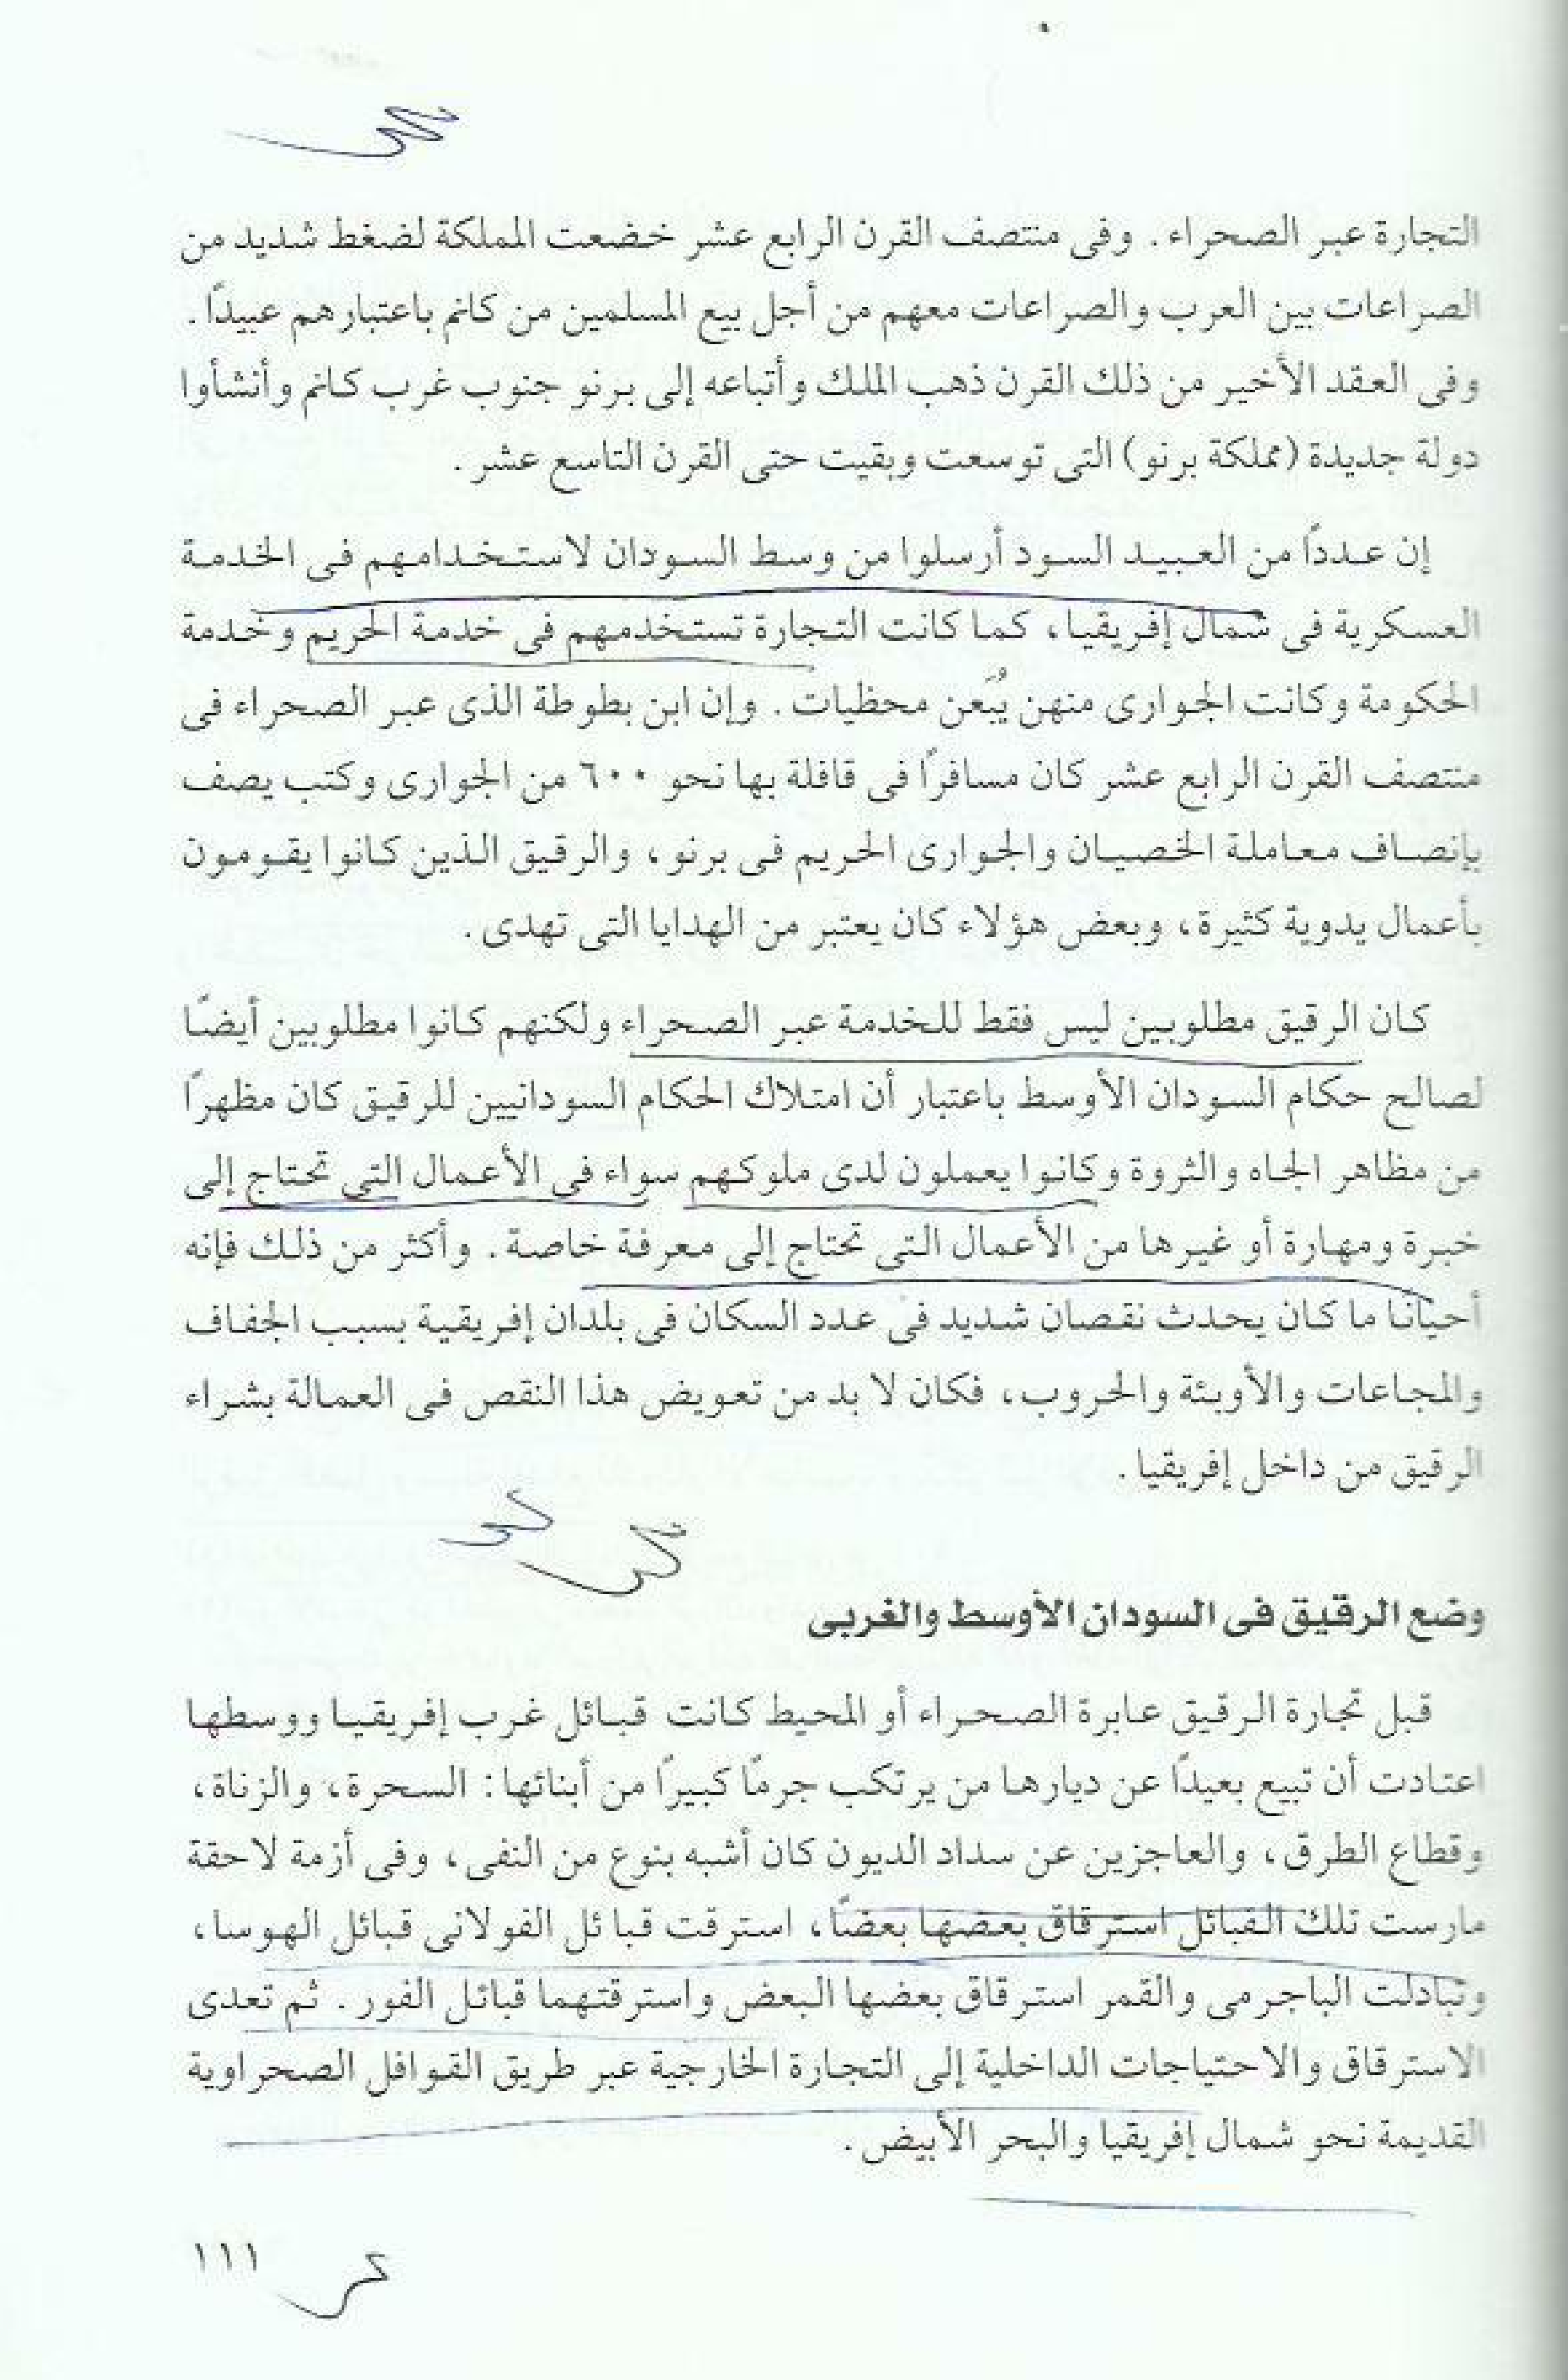 التجارة عبر الصحراء. وفى منتصف القرن الرابع عشر خضعت المملكة لضغط شديد من
الصراعات بين العرب والصراعات معهم من أجل بيع المسلمين من كانم باعتبارهم عبيدًا.
وفى العقد الأخير من ذلك القرن ذهب الملك وأتباعه إلى برنو جنوب غرب كانم وأنشأوا
دولة جديدة (مملكة برنو) التى توسعت وبقيت حتى القرن التاسع عشر.
إن عددًا من العبيد السود أرسلوا من وسط السودان لاستخدامهم فى الخدمة
العسكرية فى شمال إفريقيا، كما كانت التجارة تستخدمهم فى خدمة الحريم وخدمة
الحكومة وكانت الجوارى منهن يُبعن محظيات. وإن ابن بطوطة الذى عبر الصحراء فى
منتصف القرن الرابع عشر كان مسافرًا فى قافلة بها نحو ٦٠٠ من الجوارى وكتب يصف
بإنصاف معاملة الخصيان والجوارى الحريم فى برنو، والرقيق الذين كانوا يقومون
بأعمال يدوية كثيرة، وبعض هؤلاء كان يعتبر من الهدايا التى تهدى.
كان الرقيق مطلوبين ليس فقط للخدمة عبر الصحراء ولكنهم كانوا مطلوبين أيضًا
لصالح حكام السودان الأوسط باعتبار أن امتلاك الحكام السودانيين للرقيق كان مظهرًا
من مظاهر الجاه والثروة وكانوا يعملون لدى ملوكهم سواء فى الأعمال التى تحتاج إلى
خبرة ومهارة أو غيرها من الأعمال التى تحتاج إلى معرفة خاصة. وأكثر من ذلك فإنه
أحيانًا ما كان يحدث نقصان شديد فى عدد السكان فى بلدان إفريقية بسبب الجفاف
والمجاعات والأوبئة والحروب، فكان لا بد من تعويض هذا النقص فى العمالة بشراء
الرقيق من داخل إفريقيا.
وضع الرقيق فى السودان الأوسط والغربى
قبل تجارة الرقيق عابرة الصحراء أو المحيط كانت قبائل غرب إفريقيا ووسطها
اعتادت أن تبيع بعيدًا عن ديارها من يرتكب جرمًا كبيرًا من أبنائها: السحرة، والزناة،
وقطاع الطرق، والعاجزين عن سداد الديون كان أشبه بنوع من النفى، وفى أزمة لاحقة
مارست تلك القبائل استرقاق بعضها بعضًا، استرقت قبائل الفولانى قبائل الهوسا،
وتبادلت الباجرمى والقمر استرقاق بعضها البعض واسترقتهما قبائل الفور. ثم تعدى
الاسترقاق والاحتياجات الداخلية إلى التجارة الخارجية عبر طريق القوافل الصحراوية
القديمة نحو شمال إفريقيا والبحر الأبيض.
١١١